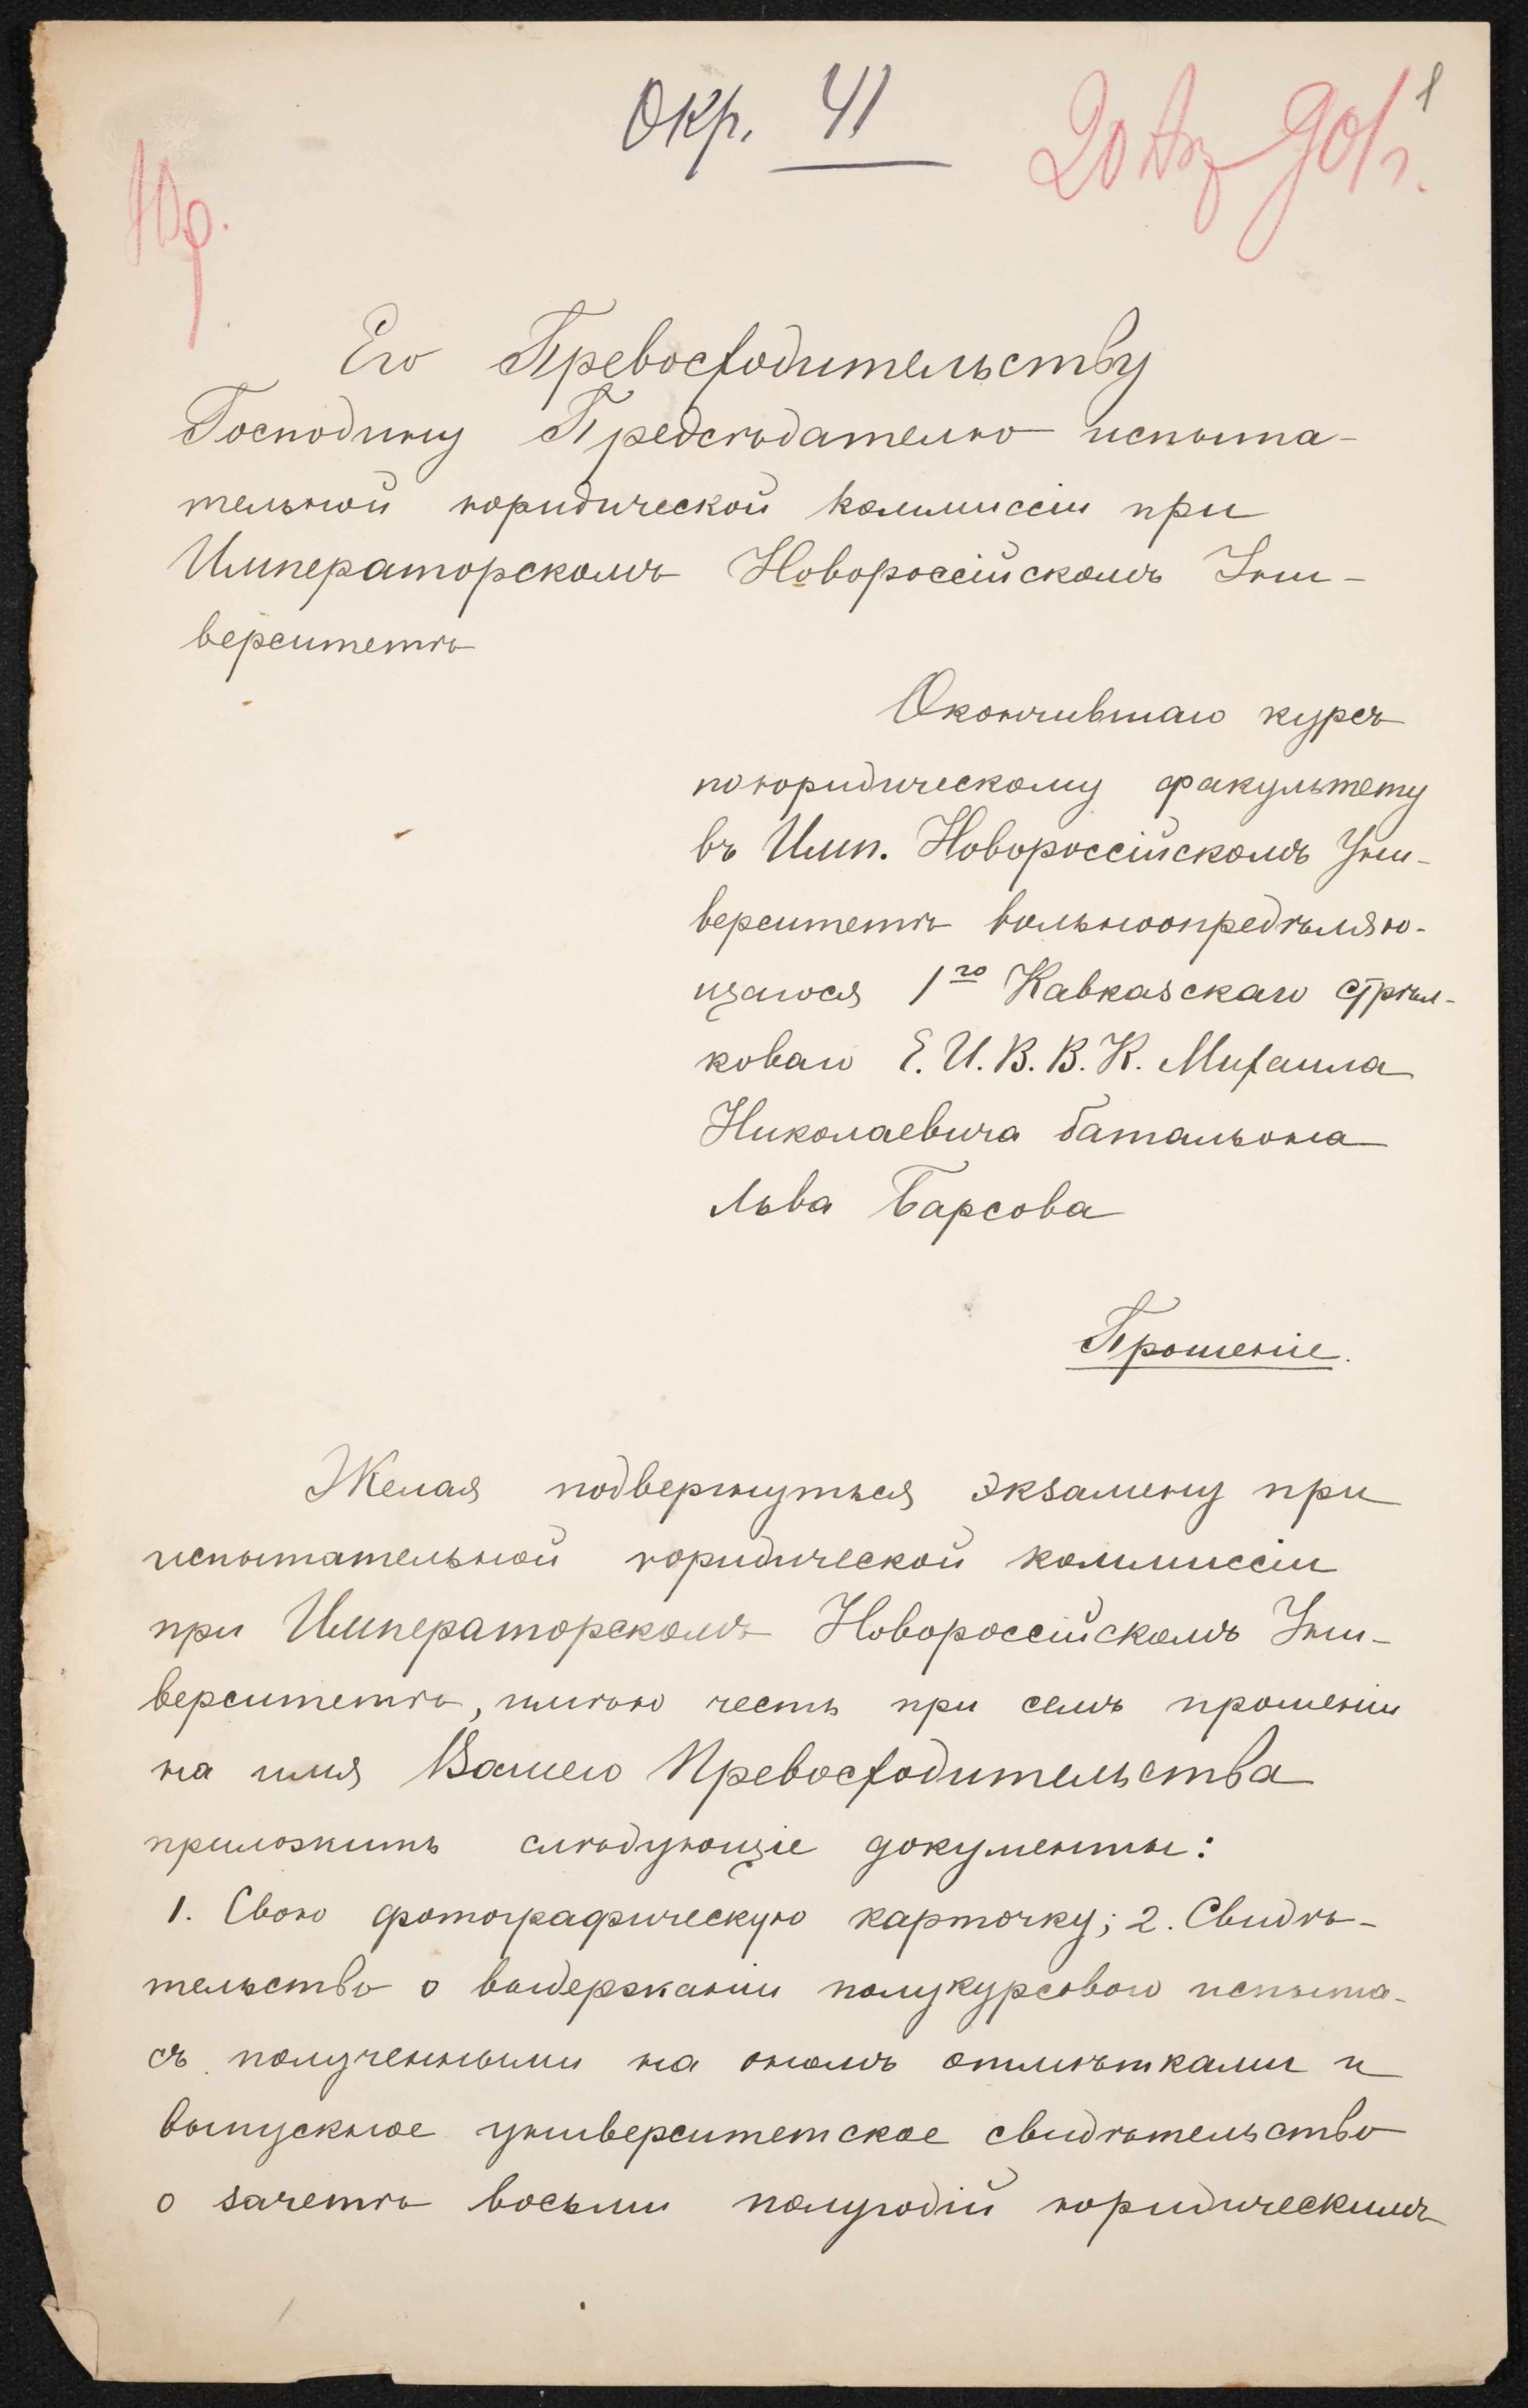 Окр. 41
1
20 Авг 901 г.
10р.
Его Превосходительству
Господину Предсѣдателю испыта-
тельной юридической коммиссіи при
Императорскомъ Новороссійскомъ Уни-
верситетѣ
Окончившаго курсъ
по юридическому факультету
въ Имп. Новороссійскомъ Уни-
верситетѣ вольноопредѣляю-
щагося 1го Кавказскаго стрѣл-
коваго Е. И. В. В. К. Михаила
Николаевича батальона
Льва Барсова
Прошеніе.
Желая подвергнуться экзамену при
испытательной юридической коммиссіи
при Императорскомъ Новороссійскомъ Уни-
верситетѣ, имѣю честь при семъ прошеніи
на имя Вашего Превосходительства
приложить слѣдующіе документы:
1. Свою фотографическую карточку; 2. Свидѣ-
тельство о выдержаніи полукурсового испыта-
съ полученными на ономъ отмѣтками и
выпускное университетское свидѣтельство
о зачетѣ восьми полугодій юридическимъ